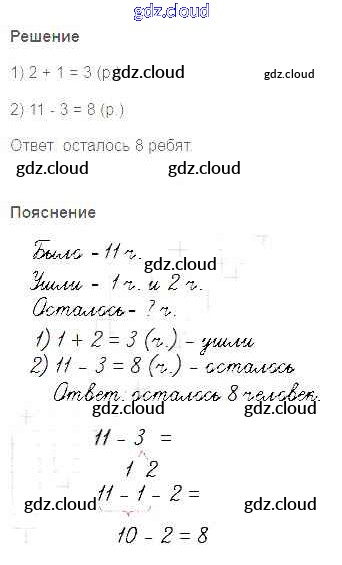 gdz.cloud
Решение
1) 2 + 1 = 3 (р gdz.cloud gdz.cloud
2) 11 - 3 = 8 (р.)
Ответ: осталось 8 ребят.
gdz.cloud gdz.cloud
Пояснение
Было - 11 ч.
gdz.cloud
Ушли - 1 ч. и 2 ч.
Осталось - ? ч.
1) 1 + 2 = 3 (ч.) - ушли
2) 11 - 3 = 8 (ч.) - осталось
Ответ: осталось 8 человек.
gdz.cloud gdz.cloud
11 - 3 =
1 2
11 - 1 - 2 =
gdz.cloud gdz.cloud
10 - 2 = 8